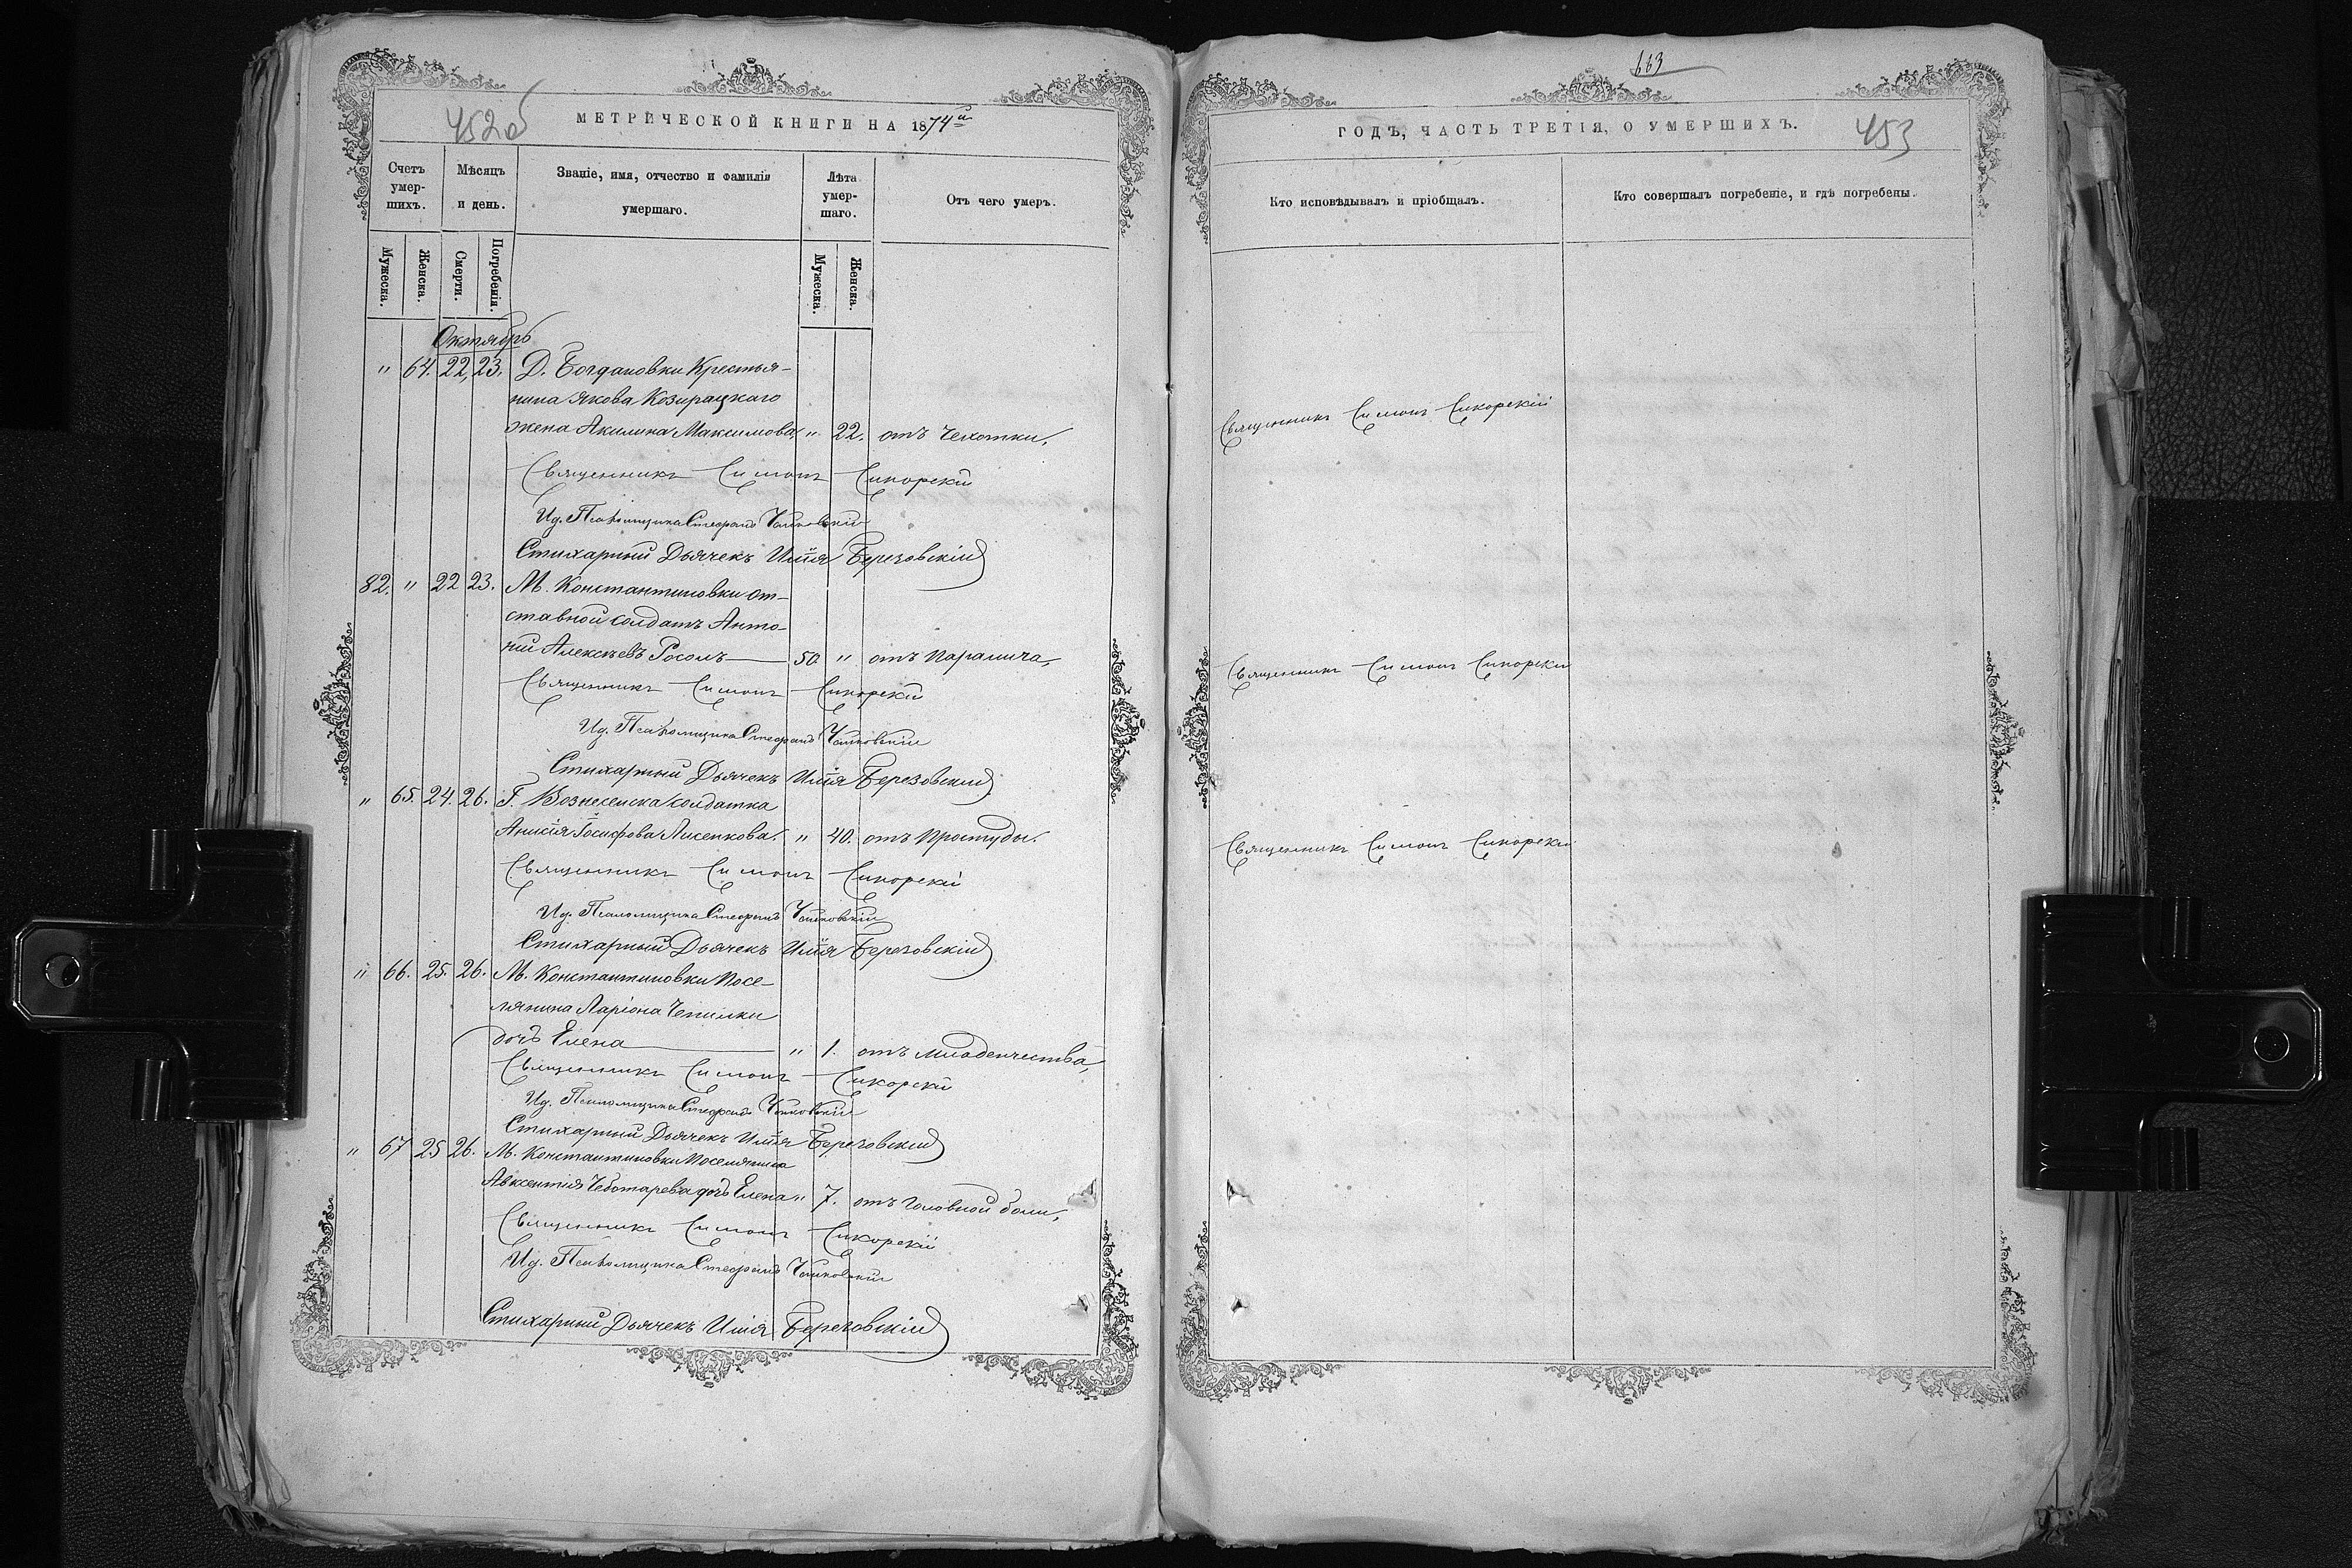 452об
МЕТРИЧЕСКОЙ КНИГИ НА 1874й
Счетъ умер-шихъ.
Мѣсяцъ и день.
Званіе, имя, отчество и фамилія умершаго.
Лѣта умер-шаго.
Отъ чего умеръ.
Мужеска.
Женска.
Смерти.
Погребенія.
Мужеска.
Женска.
Октябрь
" 64. 22, 23. Д. Богдановки Крестья-
нина Якова Козирацкаго
жена Акилина Максимова, " 22. отъ чехотки,
Священникъ Симонъ Сикорскій
Ид. Псаломщика Стефанъ
Стихарный Дьячекъ Илія Березовскій
82. " 22 23. М. Константиновки от-
ставной солдатъ Анто-
ній Алексѣевъ Росолъ 50 " отъ паралича,
Священникъ Симонъ Сикорскій
Ид. Псаломщика Стефанъ
Стихарный Дьячекъ Илія Березовскій
" 65. 24. 26. Г. Вознесенска солдатка
Анисія Іосифова Лисенкова. " 40. отъ простуды.
Священникъ Симонъ Сикорскій
Ид. Псаломщика Стефанъ
Стихарный Дьячекъ Илія Березовскій
" 66. 25. 26. М. Константиновки посе-
лянина Ларіона Чепилки
дочь Елена " 1. отъ младенчества,
Священникъ Симонъ Сикорскій
Ид. Псаломщика Стефанъ
Стихарный Дьячекъ Илія Березовскій
" 67 25 26. М. Константиновки поселянина
Авксентія Чеботарева дочь Елена " 7. отъ головной боли,
Священникъ Симонъ Сикорскій
Ид. Псаломщика Стефанъ
Стихарный Дьячекъ Илія Березовскій
663
ГОДЪ, ЧАСТЬ ТРЕТІЯ, О УМЕРШИХЪ.
453
Кто исповѣдывалъ и пріобщалъ.
Кто совершалъ погребеніе, и гдѣ погребены.
Священникъ Симонъ Сикорскій
Священникъ Симонъ Сикорскій
Священникъ Симонъ Сикорскій